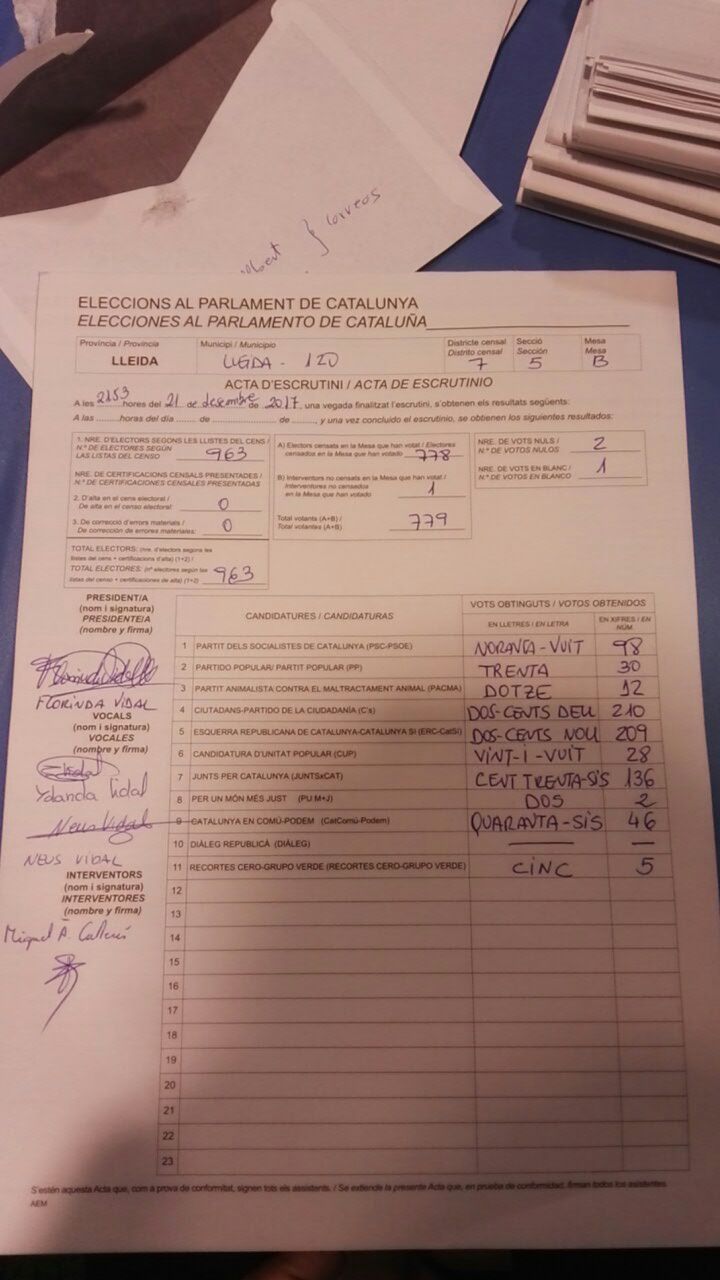 Correos
ELECCIONS AL PARLAMENT DE CATALUNYA
ELECCIONES AL PARLAMENTO DE CATALUÑA
Província / Provincia Municipi / Municipio Districte censal Secció Mesa
Distrito censal Sección Mesa
LLEIDA LLEIDA - 120 7 5 B
ACTA D'ESCRUTINI / ACTA DE ESCRUTINIO
A les 2153 hores del 21 de desembre de 2017 una vegada finalitzat l'escrutini, s'obtenen els resultats següents:
A las ......... horas del día ...... de .............. de ......, y una vez concluido el escrutinio, se obtienen los siguientes resultados:
1. NRE. D'ELECTORS SEGONS LES LLISTES DEL CENS /
N.º DE ELECTORES SEGÚN
LAS LISTAS DEL CENSO 963
NRE. DE CERTIFICACIONS CENSALS PRESENTADES /
N.º DE CERTIFICACIONES CENSALES PRESENTADAS
2. D'alta en el cens electoral /
De alta en el censo electoral: 0
3. De correcció d'errors materials /
De corrección de errores materiales: 0
TOTAL ELECTORS: (nre. d'electors segons les
llistes del cens + certificacions d'alta) (1+2) /
TOTAL ELECTORES: (nº electores según las
listas del censo + certificaciones de alta) (1+2) 963
A) Electors censats en la Mesa que han votat / Electores
censados en la Mesa que han votado 778
B) Interventors no censats en la Mesa que han votat /
Interventores no censados
en la Mesa que han votado 1
Total votants (A+B) /
Total votantes (A+B) 779
NRE. DE VOTS NULS /
N.º DE VOTOS NULOS 2
NRE. DE VOTS EN BLANC /
N.º DE VOTOS EN BLANCO 1
PRESIDENT/A
(nom i signatura)
PRESIDENTE/A
(nombre y firma)
FLORINDA VIDAL
VOCALS
(nom i signatura)
VOCALES
(nombre y firma)
Yolanda Vidal
Neus Vidal
NEUS VIDAL
INTERVENTORS
(nom i signatura)
INTERVENTORES
(nombre y firma)
Miquel A.
CANDIDATURES / CANDIDATURAS VOTS OBTINGUTS / VOTOS OBTENIDOS
EN LLETRES / EN LETRA EN XIFRES / EN NÚM.
1 PARTIT DELS SOCIALISTES DE CATALUNYA (PSC-PSOE) NORANTA-VUIT 98
2 PARTIDO POPULAR/ PARTIT POPULAR (PP) TRENTA 30
3 PARTIT ANIMALISTA CONTRA EL MALTRACTAMENT ANIMAL (PACMA) DOTZE 12
4 CIUTADANS-PARTIDO DE LA CIUDADANÍA (C's) DOS-CENTS DEU 210
5 ESQUERRA REPUBLICANA DE CATALUNYA-CATALUNYA SÍ (ERC-CatSí) DOS-CENTS NOU 209
6 CANDIDATURA D'UNITAT POPULAR (CUP) VINT-I-VUIT 28
7 JUNTS PER CATALUNYA (JUNTSxCAT) CENT TRENTA-SIS 136
8 PER UN MÓN MÉS JUST (PUM+J) DOS 2
9 CATALUNYA EN COMÚ-PODEM (CatComú-Podem) QUARANTA-SIS 46
10 DIÀLEG REPUBLICÀ (DIÀLEG) — —
11 RECORTES CERO-GRUPO VERDE (RECORTES CERO-GRUPO VERDE) CINC 5
12
13
14
15
16
17
18
19
20
21
22
23
S'estén aquesta Acta que, com a prova de conformitat, signen tots els assistents. / Se extiende la presente Acta que, en prueba de conformidad, firman todos los asistentes.
AEM